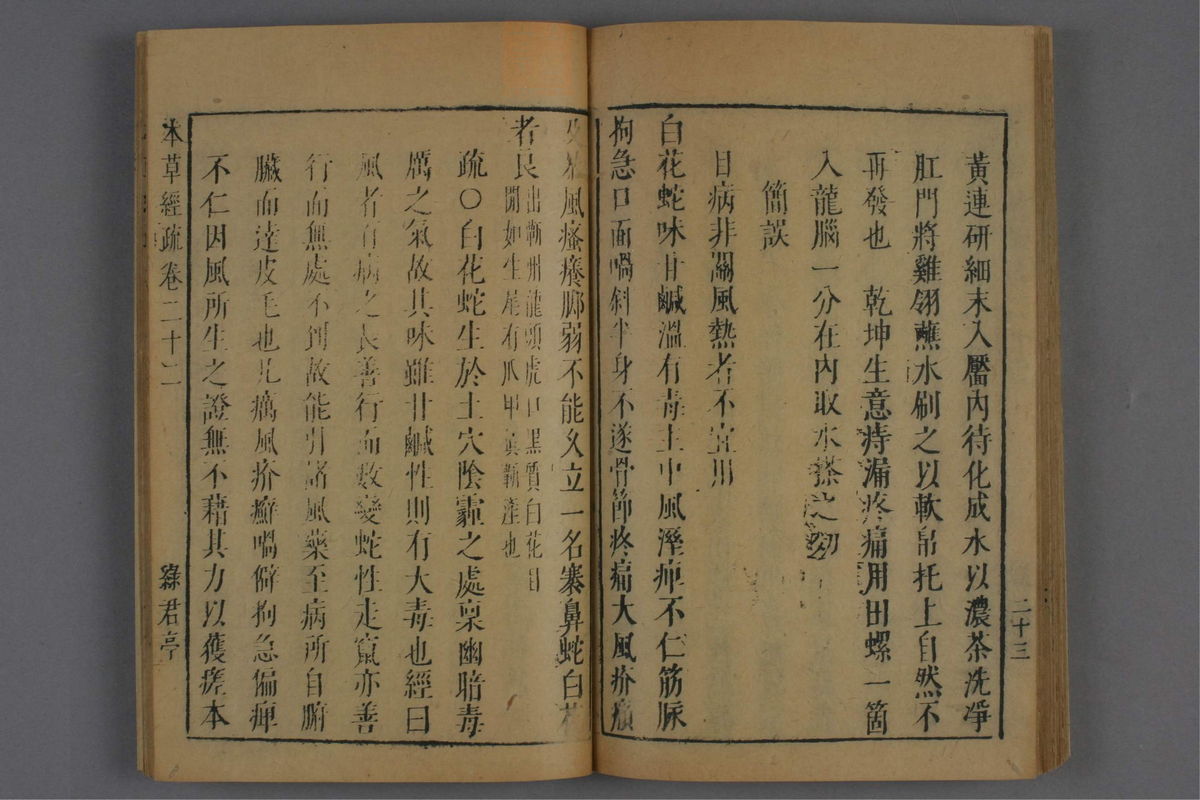 二十三
黃連研細末入靨內待化成水以濃茶洗淨
肛門將雞翎蘸水刷之以軟帛托上自然不
再發也　乾坤生意痔漏疼痛用田螺一箇
入龍腦一分在內取水搽之
簡誤
目病非關風熱者不宜用
白花蛇味甘鹹溫有毒主中風溼痺不仁筋脈
拘急口面喎斜半身不遂骨節疼痛大風疥癩
及風瘙癢腳弱不能久立一名褰鼻蛇白花
者良出蘄州龍頭虎口黑質白花目
開如生尾有爪甲真蘄產也
疏〇白花蛇生於土穴陰霾之處稟幽暗毒
厲之氣故其味雖甘鹹性則有大毒也經曰
風者百病之長善行而數變蛇性走竄亦善
行而無處不到故能引諸風藥至病所自腑
臟而達皮毛也凡癘風疥癬喎僻拘急偏痺
不仁因風所生之證無不藉其力以獲瘥本
本草經疏卷二十二
綠君亭